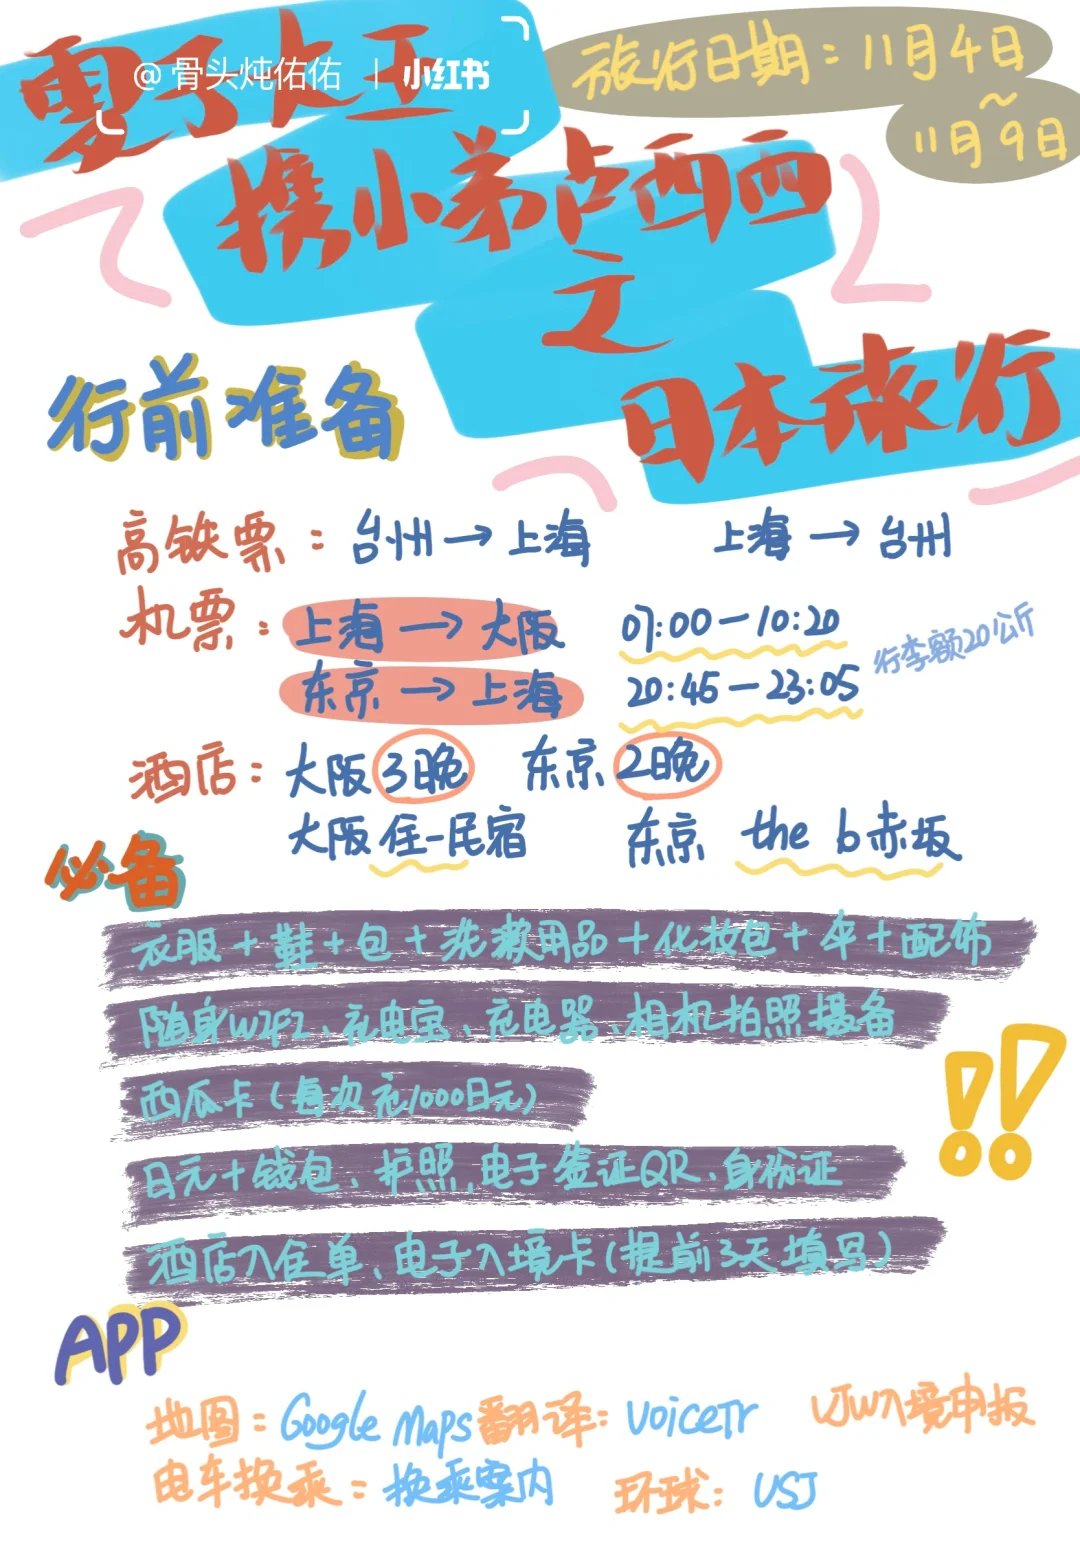 @骨头炖佑佑 | 小红书
夏子大王
旅行日期：11月4日
～
11月9日
携小弟卢西西
之
日本旅行
行前准备
高铁票：台州→上海 上海→台州
机票：上海→大阪 07:00—10:20
行李额20公斤
东京→上海 20:45—23:05
酒店：大阪3晚 东京2晚
大阪住一民宿 东京 the b赤坂
必备
衣服+鞋+包+洗漱用品+化妆包+伞+配饰
随身WIFI、充电宝、充电器、相机拍照摄备
西瓜卡(每次充1000日元)
日元+钱包、护照、电子签证QR、身份证
酒店入住单、电子入境卡(提前3天填写)
APP
地图：Google Maps 翻译：VoiceTr VJW入境申报
电车换乘：换乘案内 环球：USJ